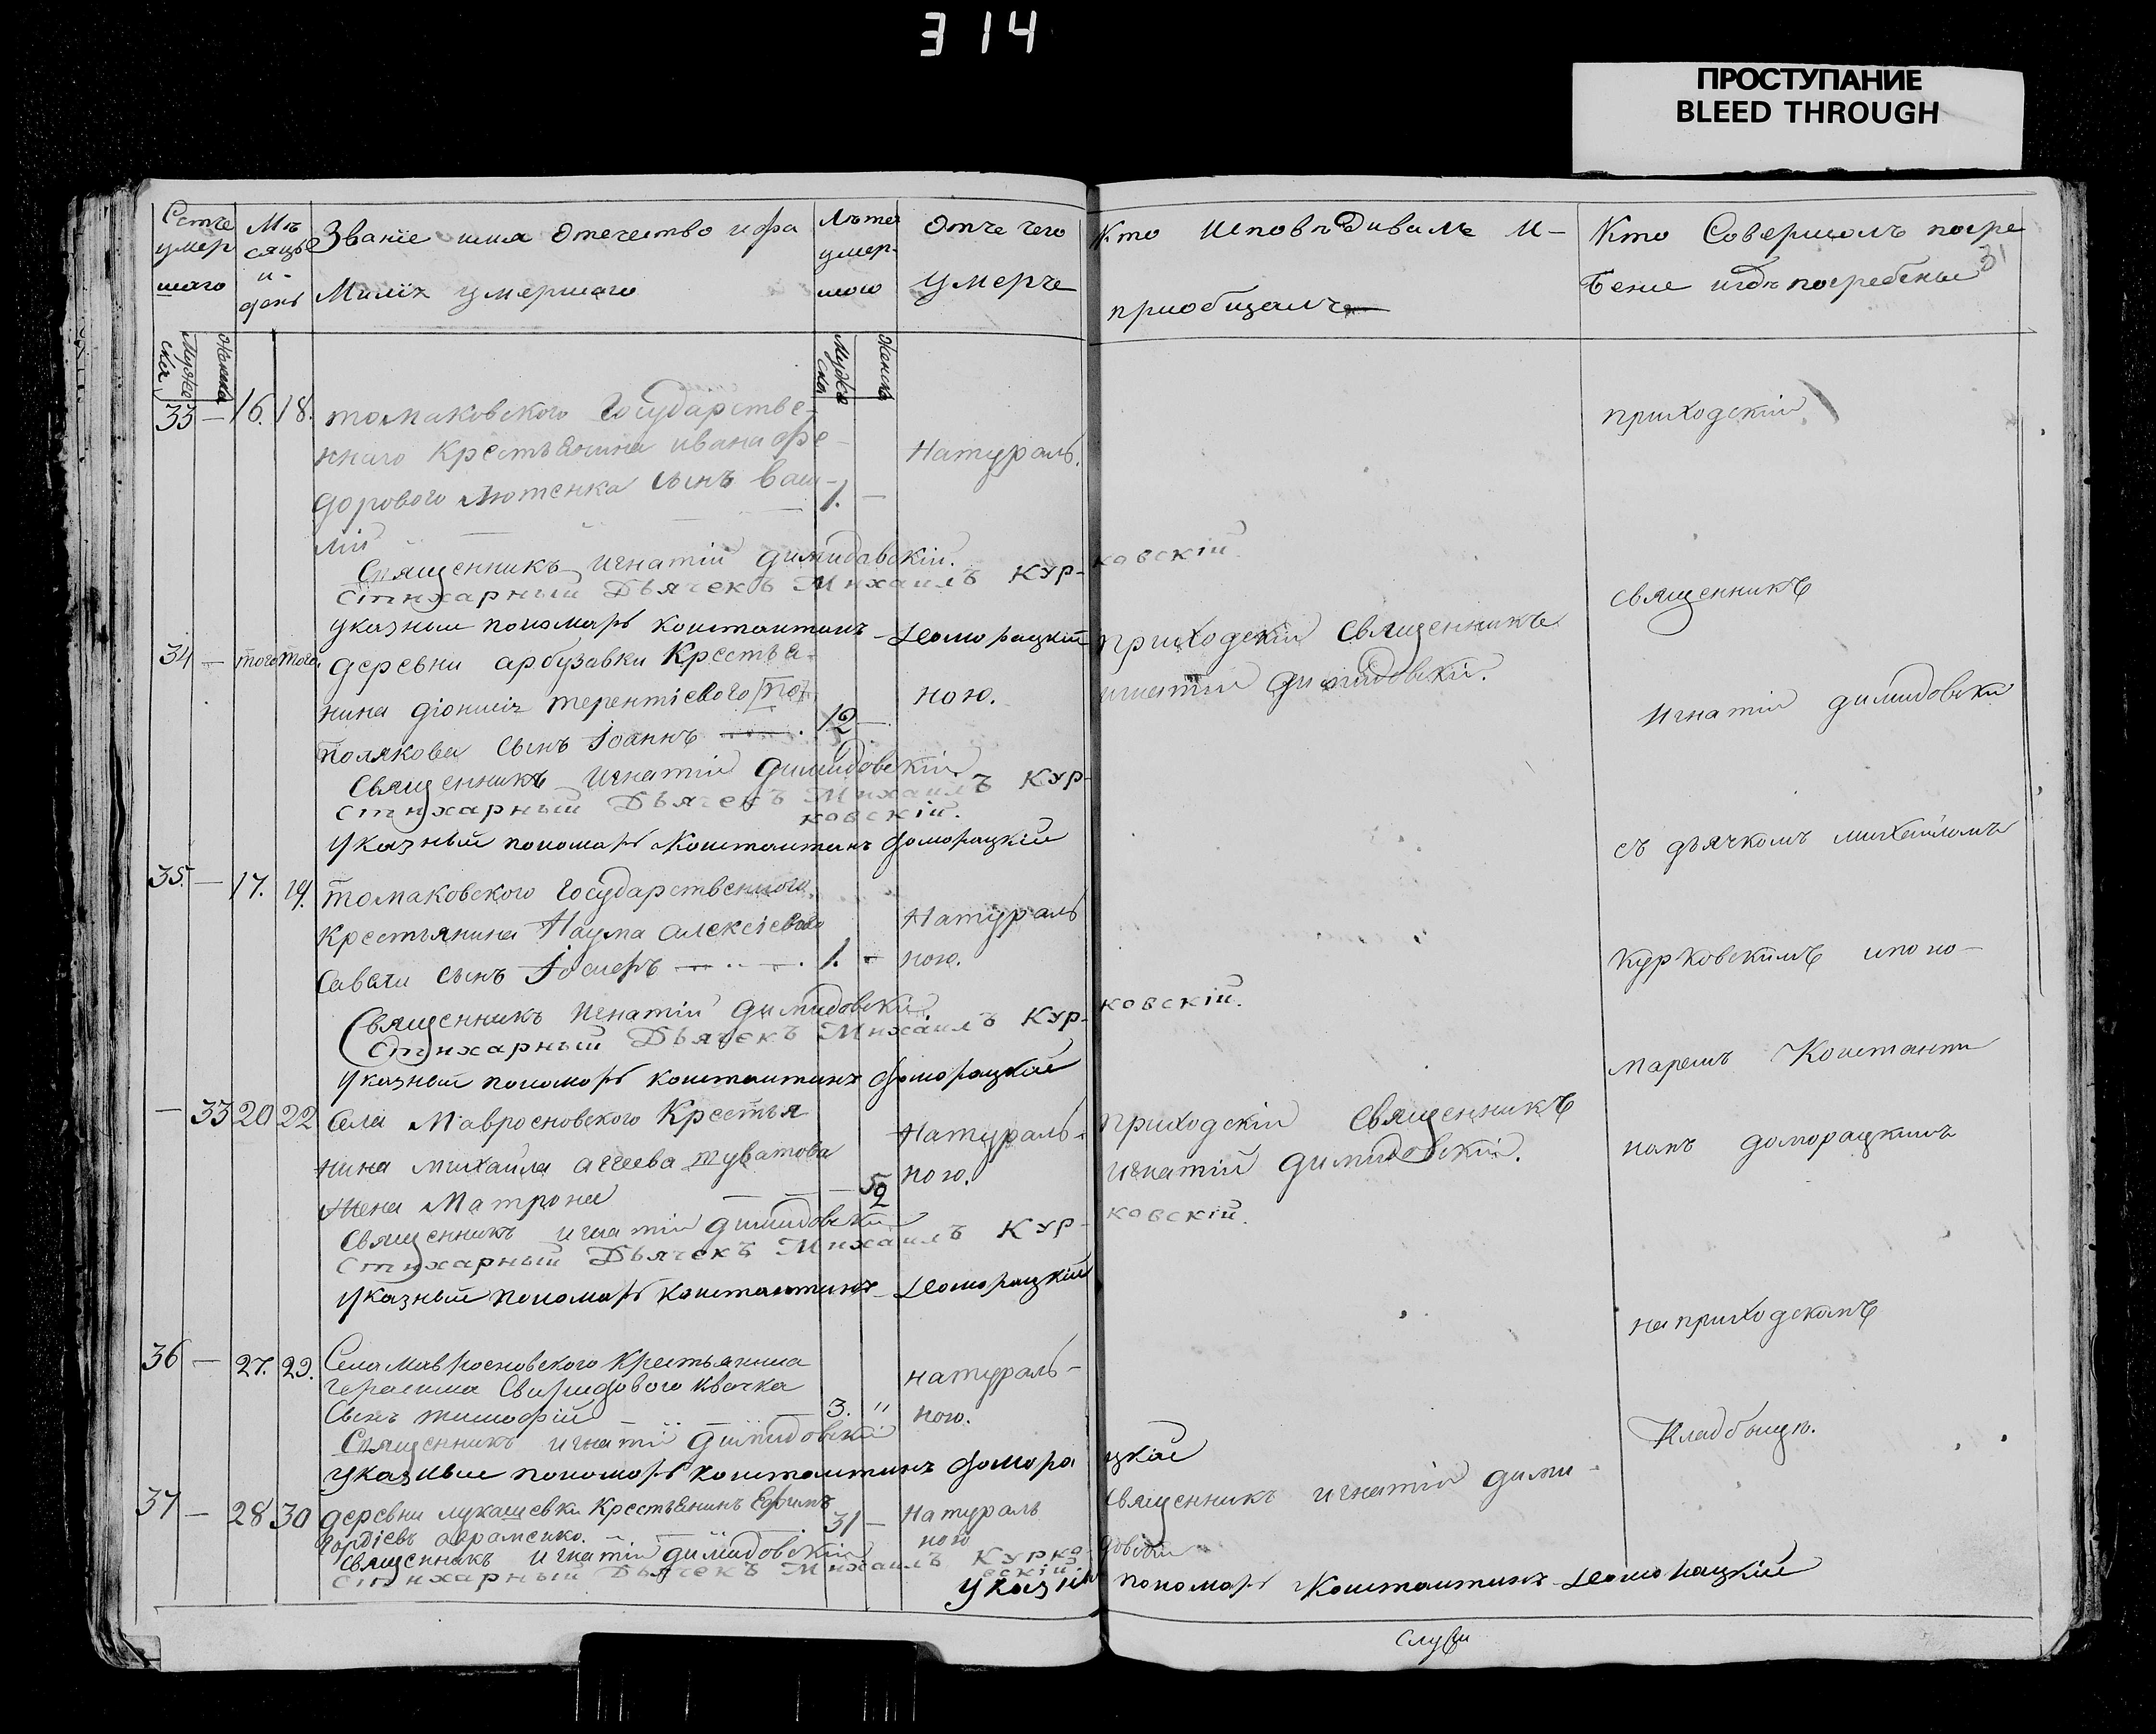 314
ПРОСТУПАНИЕ
BLEED THROUGH
Счетъ умершаго
Мѣсяцъ и день
Званіе имя отечество и фамиліх умершаго
Лѣта умершаго
Отъ чего умеръ
Кто исповѣдивалъ и приобщалъ
Кто совершалъ погребение и гдѣ погребены
31
Мужска
Женска
Мужска
Женска
33 — 16. 18. томаковского государстве-
ннаго Крестьянина ивана фе-
дорового Лютенка сынъ васи- 1. —
лій
Натураль.
Священникъ игнатій димидовскій.
Стихарный Дьячекъ Михаилъ Кур-ковскій.
указный пономарь константинъ доморацкій
34 — того того деревни арбузавки Крестья-
нина діонисія терентіевого
полякова сынъ Іоаннъ 12 —
ною.
приходскій священникъ
игнатій димидовскій.
Священникъ игнатій димидовскій
Стихарный Дьячекъ Михаилъ Кур-
ковскій.
Указный пономарь Константинъ доморацкій
35. — 17. 19. томаковского государственного
Крестьянина Наума алексіевого
саваги сынъ Іосифъ 1. —
Натураль
ною.
Священникъ Игнатій димидовскій.
Стихарный Дьячекъ Михаилъ Кур-ковскій.
Указный пономарь константинъ доморацкій
— 33 20 22 Села Мавросновского Крестья
нина михаила аггеева туватова
жена Матрона — 52
Натураль-
ною.
приходскій священникъ
игнатій димидовскій.
Священникъ игнатій димидовскій
Стихарный Дьячекъ Михаилъ Кур-ковскій.
Указный пономарь константинъ доморацкій
36 — 27. 29. Села мавросновского Крестьянина
герасима Свиридового Квачка
Сынъ тимофій 3. "
натураль-
ною.
Священникъ игнатій димидовскій
указные пономарь константинъ доморацкій
37 — 28 30 деревни лукашевки Крестьянинъ Ефимъ
гордіевъ авраменко. 31 —
Натураль
ною
Священникъ игнатій дими-
довскій
Священникъ игнатій димидовскій
Стихарный Дьячекъ Михаилъ Курко
вскій.
Указный пономарь Константинъ доморацкій
приходскій
священникъ
Игнатій димидовски
съ дьячкомъ михаиломъ
курковскимъ и поно-
маремъ Константи
номъ доморацкимъ
на приходскомъ
Кладбищѣ.